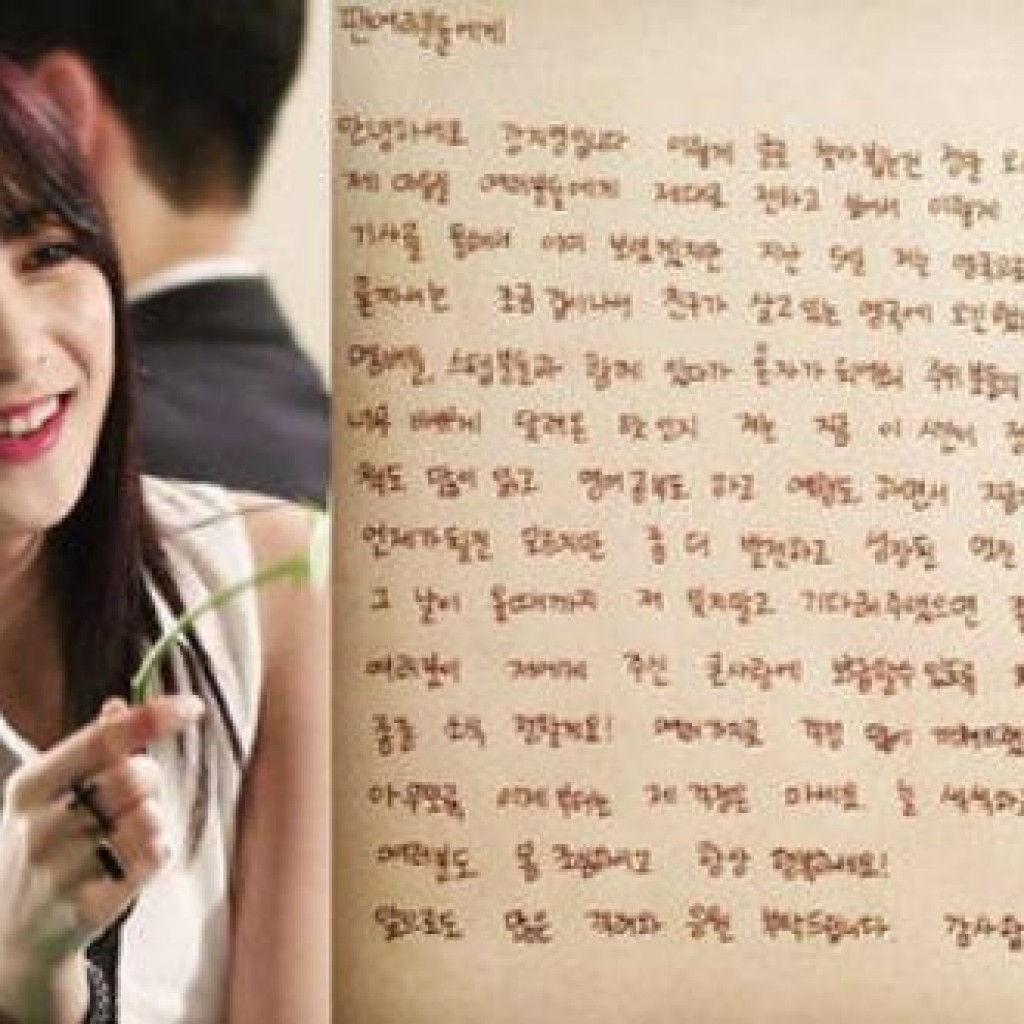 팬여러분들에게
안녕하세요 강지영입니다 이렇게 글로 찾아뵙는건 정말 오
제 마음을 여러분들에게 제대로 전하고 싶어서 이렇게
기사를 통해서 이미 보셨겠지만 지난 5일 저는 영국으로
혼자서는 조금 겁이나서 친구가 살고 있는 영국에 오긴했
멤버들, 스텝분들과 함께 있다가 혼자가 되면의 주위분들의
너무 바쁘게 달려온 탓인지 저는 지금 이 시간이
책도 많이 읽고 영어공부도 하고 여행도 하면서 지금
언제가될진 모르지만 좀 더 발전하고 성장된 멋진
그 날이 올때까지 저 잊지말고 기다려주셨으면
여러분이 저에게 주신 큰사랑에 보답할수 있도록
종종 소식 전할게요! 여러가지로 걱정 많이 끼쳐드렸
아무쪼록 이제부터는 제 걱정은 마세요 늘 씩씩하
여러분도 몸 조심하시고 항상 행복하세요!
앞으로도 많은 격려와 응원 부탁드립니다. 감사합